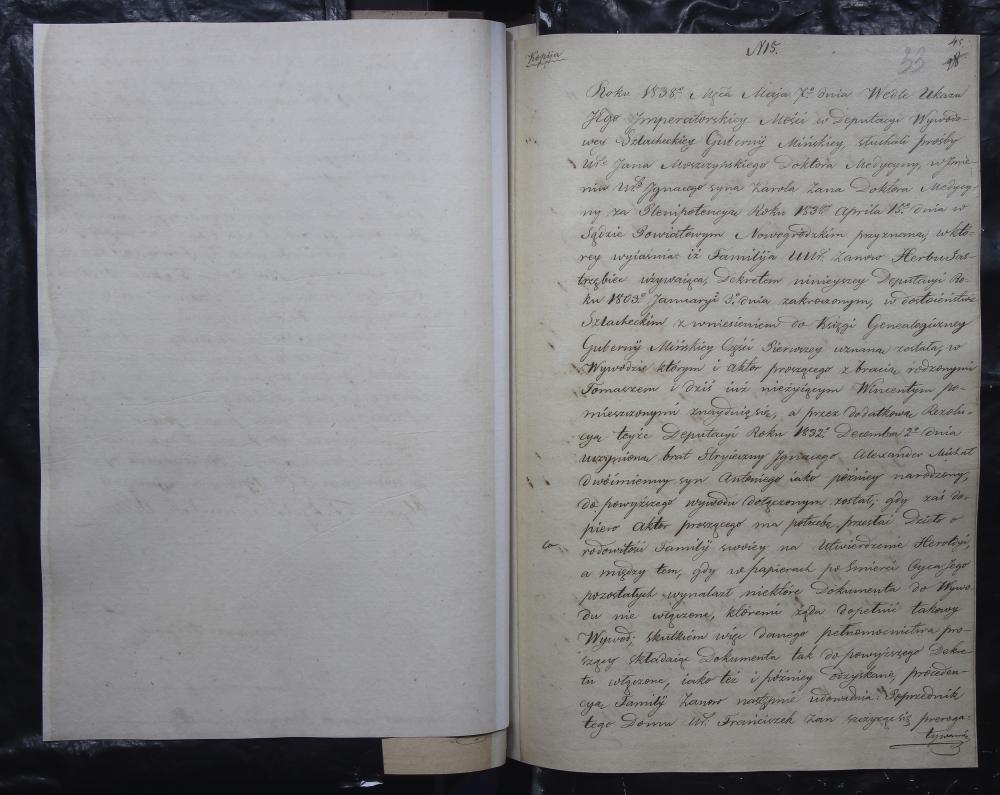 Kopija
N15.
33
45
98
Roku 1838º Mca Maja 7º dnia Wedle Ukazu
JEgo Imperatorskiey Mości w Deputacyi Wywodo-
wey Szlacheckiey Gubernij Mińskiey, słuchali prośby
Uº Jana Moszczyńskiego Doktora Medycyny, w Imie-
niu Uº Jgnacego syna Karola Zana Doktora Medycy-
ny za Plenipotencyą Roku 1838º Aprila 15º dnia w
Sądzie Powiatowym Nowogródzkim przyznaną, w któ-
rey wyiaśnia: iż Familija UUr. Zanow Herbu Jas-
trzębiec używaiąca, Dekretem ninieyszey Deputacyi Ro-
ku 1803º Januaryi 3º dnia zakroczonym, w dostoieństwie
Szlacheckim z wniesieniem do Księgi Genealogiczney
Gubernij Mińskiey Części Pierwszey uznaną została, w
Wywodzie którym i aktor proszącego z bracią rodzonymi
Tomaszem i dziś iuż nieżyiącym Wincentym po-
mieszczonymi znayduią się, a przez dodatkową Rezolu-
cyą teyże Deputacyi Roku 1832º Decembra 2º dnia
uczynioną brat Stryieczny Jgnacego Alexander Michał
dwóimienny syn Antoniego iako późniey narodzony,
do powyższego wywodu dołączonym został; gdy zaś do-
piero Aktor proszącego ma potrzebę przesłać Dzieło o
rodowitości Familij swoiey na Utwierdzenie Heroldyi,
a między tem, gdy w papierach po śmierci Oyca Jego
pozostałych wynalazł niektóre Dokumenta do Wywo-
du nie włączone, któremi żąda dopełnić takowy
Wywod; skutkiem więc danego pełnomocnictwa pro-
szący składaiąc Dokumenta tak do powyższego Dekre-
tu włączone, iako też i późniey odzyskane, proceden-
cyą Familij Zanow następnie udowadnia: Poprzednik
tego Domu Ur. Franciszek Zan szczycąc się preroga-
tywami